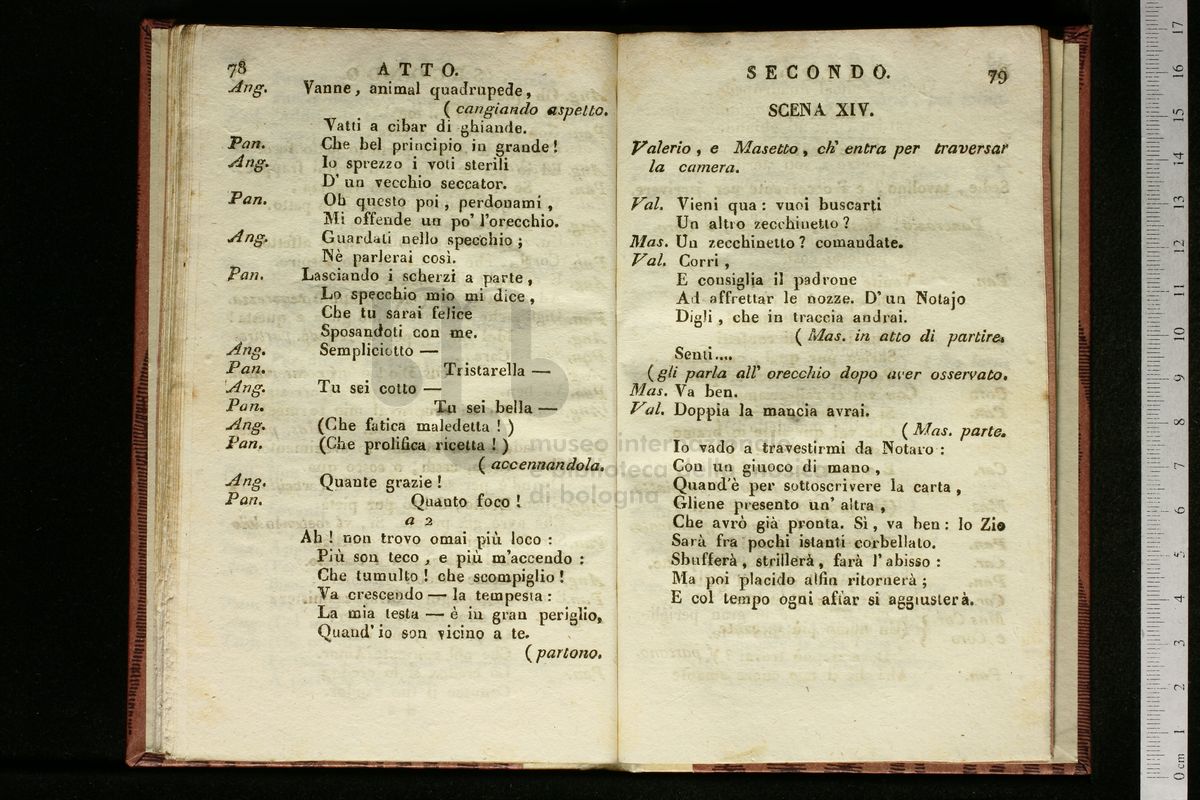 78 ATTO.
Ang. Vanne, animal quadrupede,
( cangiando aspetto.
Vatti a cibar di ghiande.
Pan. Che bel principio in grande!
Ang. Io sprezzo i voti sterili
D' un vecchio seccator.
Pan. Oh questo poi, perdonami,
Mi offende un po' l'orecchio.
Ang. Guardati nello specchio;
Nè parlerai così.
Pan. Lasciando i scherzi a parte,
Lo specchio mio mi dice,
Che tu sarai felice
Sposandoti con me.
Ang. Sempliciotto —
Pan. Tristarella —
Ang. Tu sei cotto —
Pan. Tu sei bella —
Ang. (Che fatica maledetta!)
Pan. (Che prolifica ricetta!)
( accennandola.
Ang. Quante grazie!
Pan. Quanto foco!
a 2
Ah! non trovo omai più loco:
Più son teco, e più m'accendo:
Che tumulto! che scompiglio!
Va crescendo — la tempesta:
La mia testa — è in gran periglio,
Quand' io son vicino a te.
( partono.
SECONDO. 79
SCENA XIV.
Valerio, e Masetto, ch' entra per traversar
la camera.
Val. Vieni qua: vuoi buscarti
Un altro zecchinetto?
Mas. Un zecchinetto? comandate.
Val. Corri,
E consiglia il padrone
Ad affrettar le nozze. D' un Notajo
Digli, che in traccia andrai.
( Mas. in atto di partire.
Senti....
( gli parla all' orecchio dopo aver osservato.
Mas. Va ben.
Val. Doppia la mancia avrai.
( Mas. parte.
Io vado a travestirmi da Notaro:
Con un giuoco di mano,
Quand'è per sottoscrivere la carta,
Gliene presento un' altra,
Che avrò già pronta. Sì, va ben: lo Zio
Sarà fra pochi istanti corbellato.
Sbufferà, strillerà, farà l' abisso:
Ma poi placido alfin ritornerà;
E col tempo ogni affar si aggiusterà.
museo internazionale
e biblioteca della musica
di bologna
0 cm 1 2 3 4 5 6 7 8 9 10 11 12 13 14 15 16 17